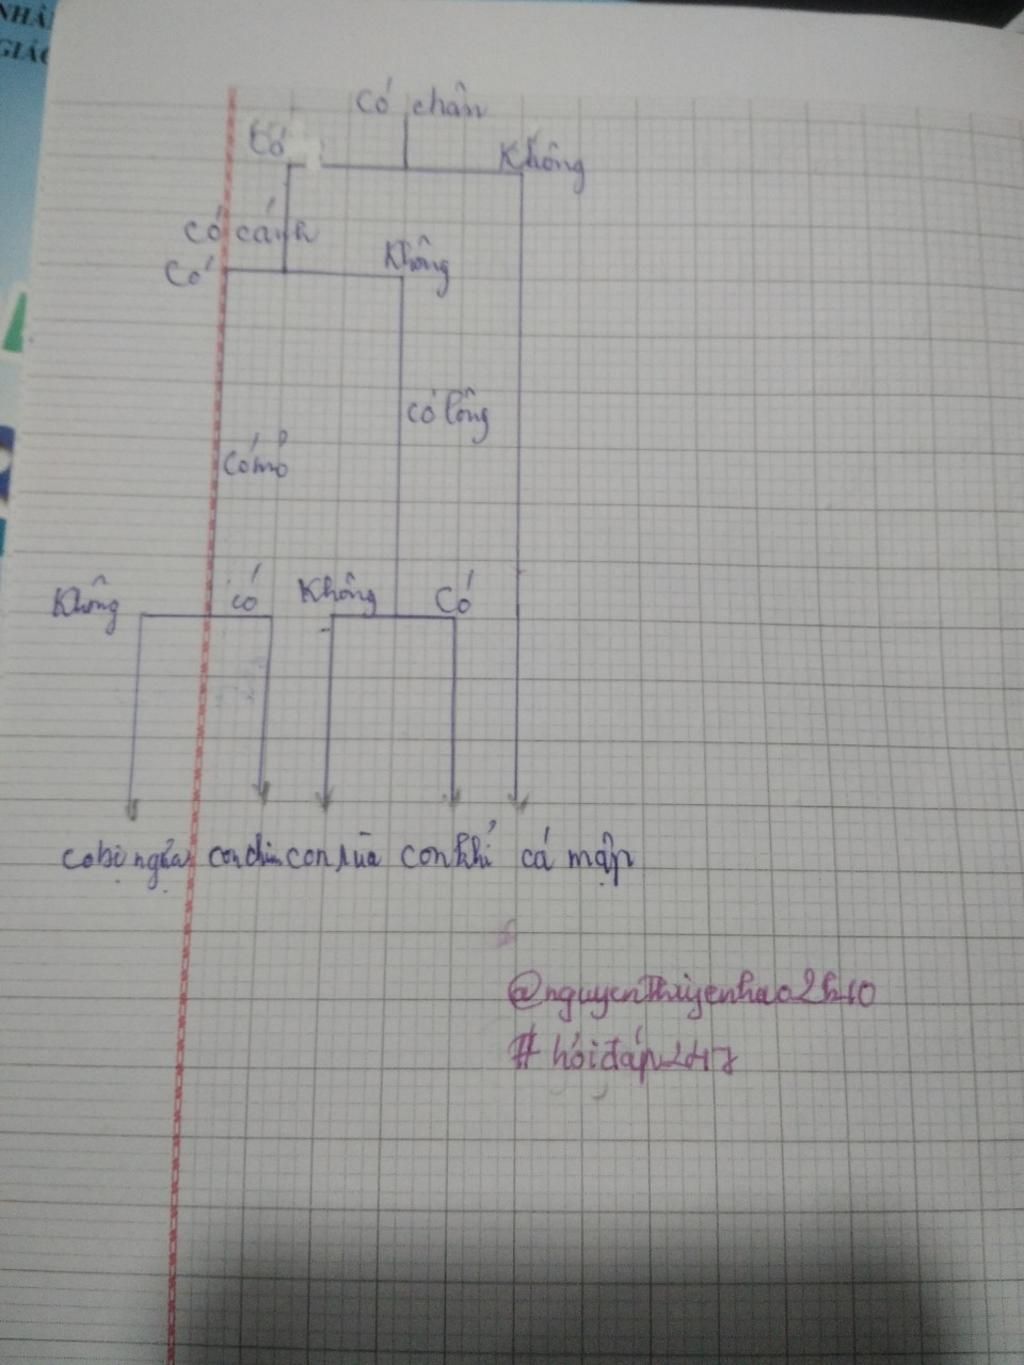 NHÂ
GIÁO
Có chân
Có
Không
có cánh
Có
Không
có lông
có mỏ
Không
có
Không
Có
cobọ ngựa con chim con rùa con khỉ cá mập
@nguyenthuyenhao2k10
# hỏiđáp247